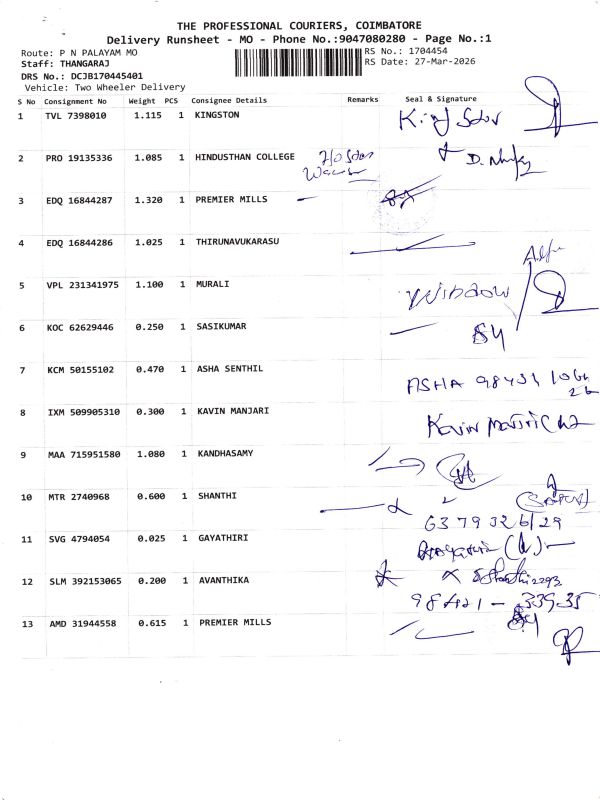 THE PROFESSIONAL COURIERS, COIMBATORE
Delivery Runsheet - MO - Phone No.:9047080280 - Page No.:1
Route: P N PALAYAM MO
RS No.: 1704454
Staff: THANGARAJ
RS Date: 27-Mar-2026
DRS No.: DCJB170445401
Vehicle: Two Wheeler Delivery
S No Consignment No Weight PCS Consignee Details Remarks Seal & Signature
1 TVL 7398010 1.115 1 KINGSTON
2 PRO 19135336 1.085 1 HINDUSTHAN COLLEGE
3 EDQ 16844287 1.320 1 PREMIER MILLS
4 EDQ 16844286 1.025 1 THIRUNAVUKARASU
5 VPL 231341975 1.100 1 MURALI
Window
6 KOC 62629446 0.250 1 SASIKUMAR
7 KCM 50155102 0.470 1 ASHA SENTHIL
ASHA
8 IXM 509905310 0.300 1 KAVIN MANJARI
Kavin
9 MAA 715951580 1.080 1 KANDHASAMY
10 MTR 2740968 0.600 1 SHANTHI
11 SVG 4794054 0.025 1 GAYATHIRI
12 SLM 392153065 0.200 1 AVANTHIKA
13 AMD 31944558 0.615 1 PREMIER MILLS